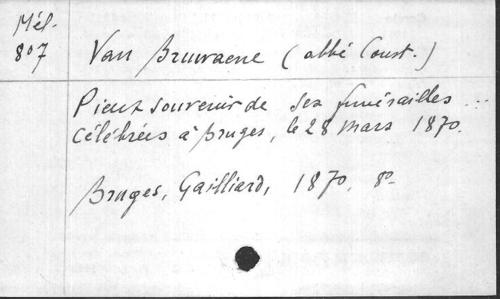 Mél.
807
Van Bruwaene (abbé Const.)
Pieux souvenir de ses funérailles ...
célébrées à Bruges, le 28 mars 1870.
Bruges, Gailliard, 1870, 8º